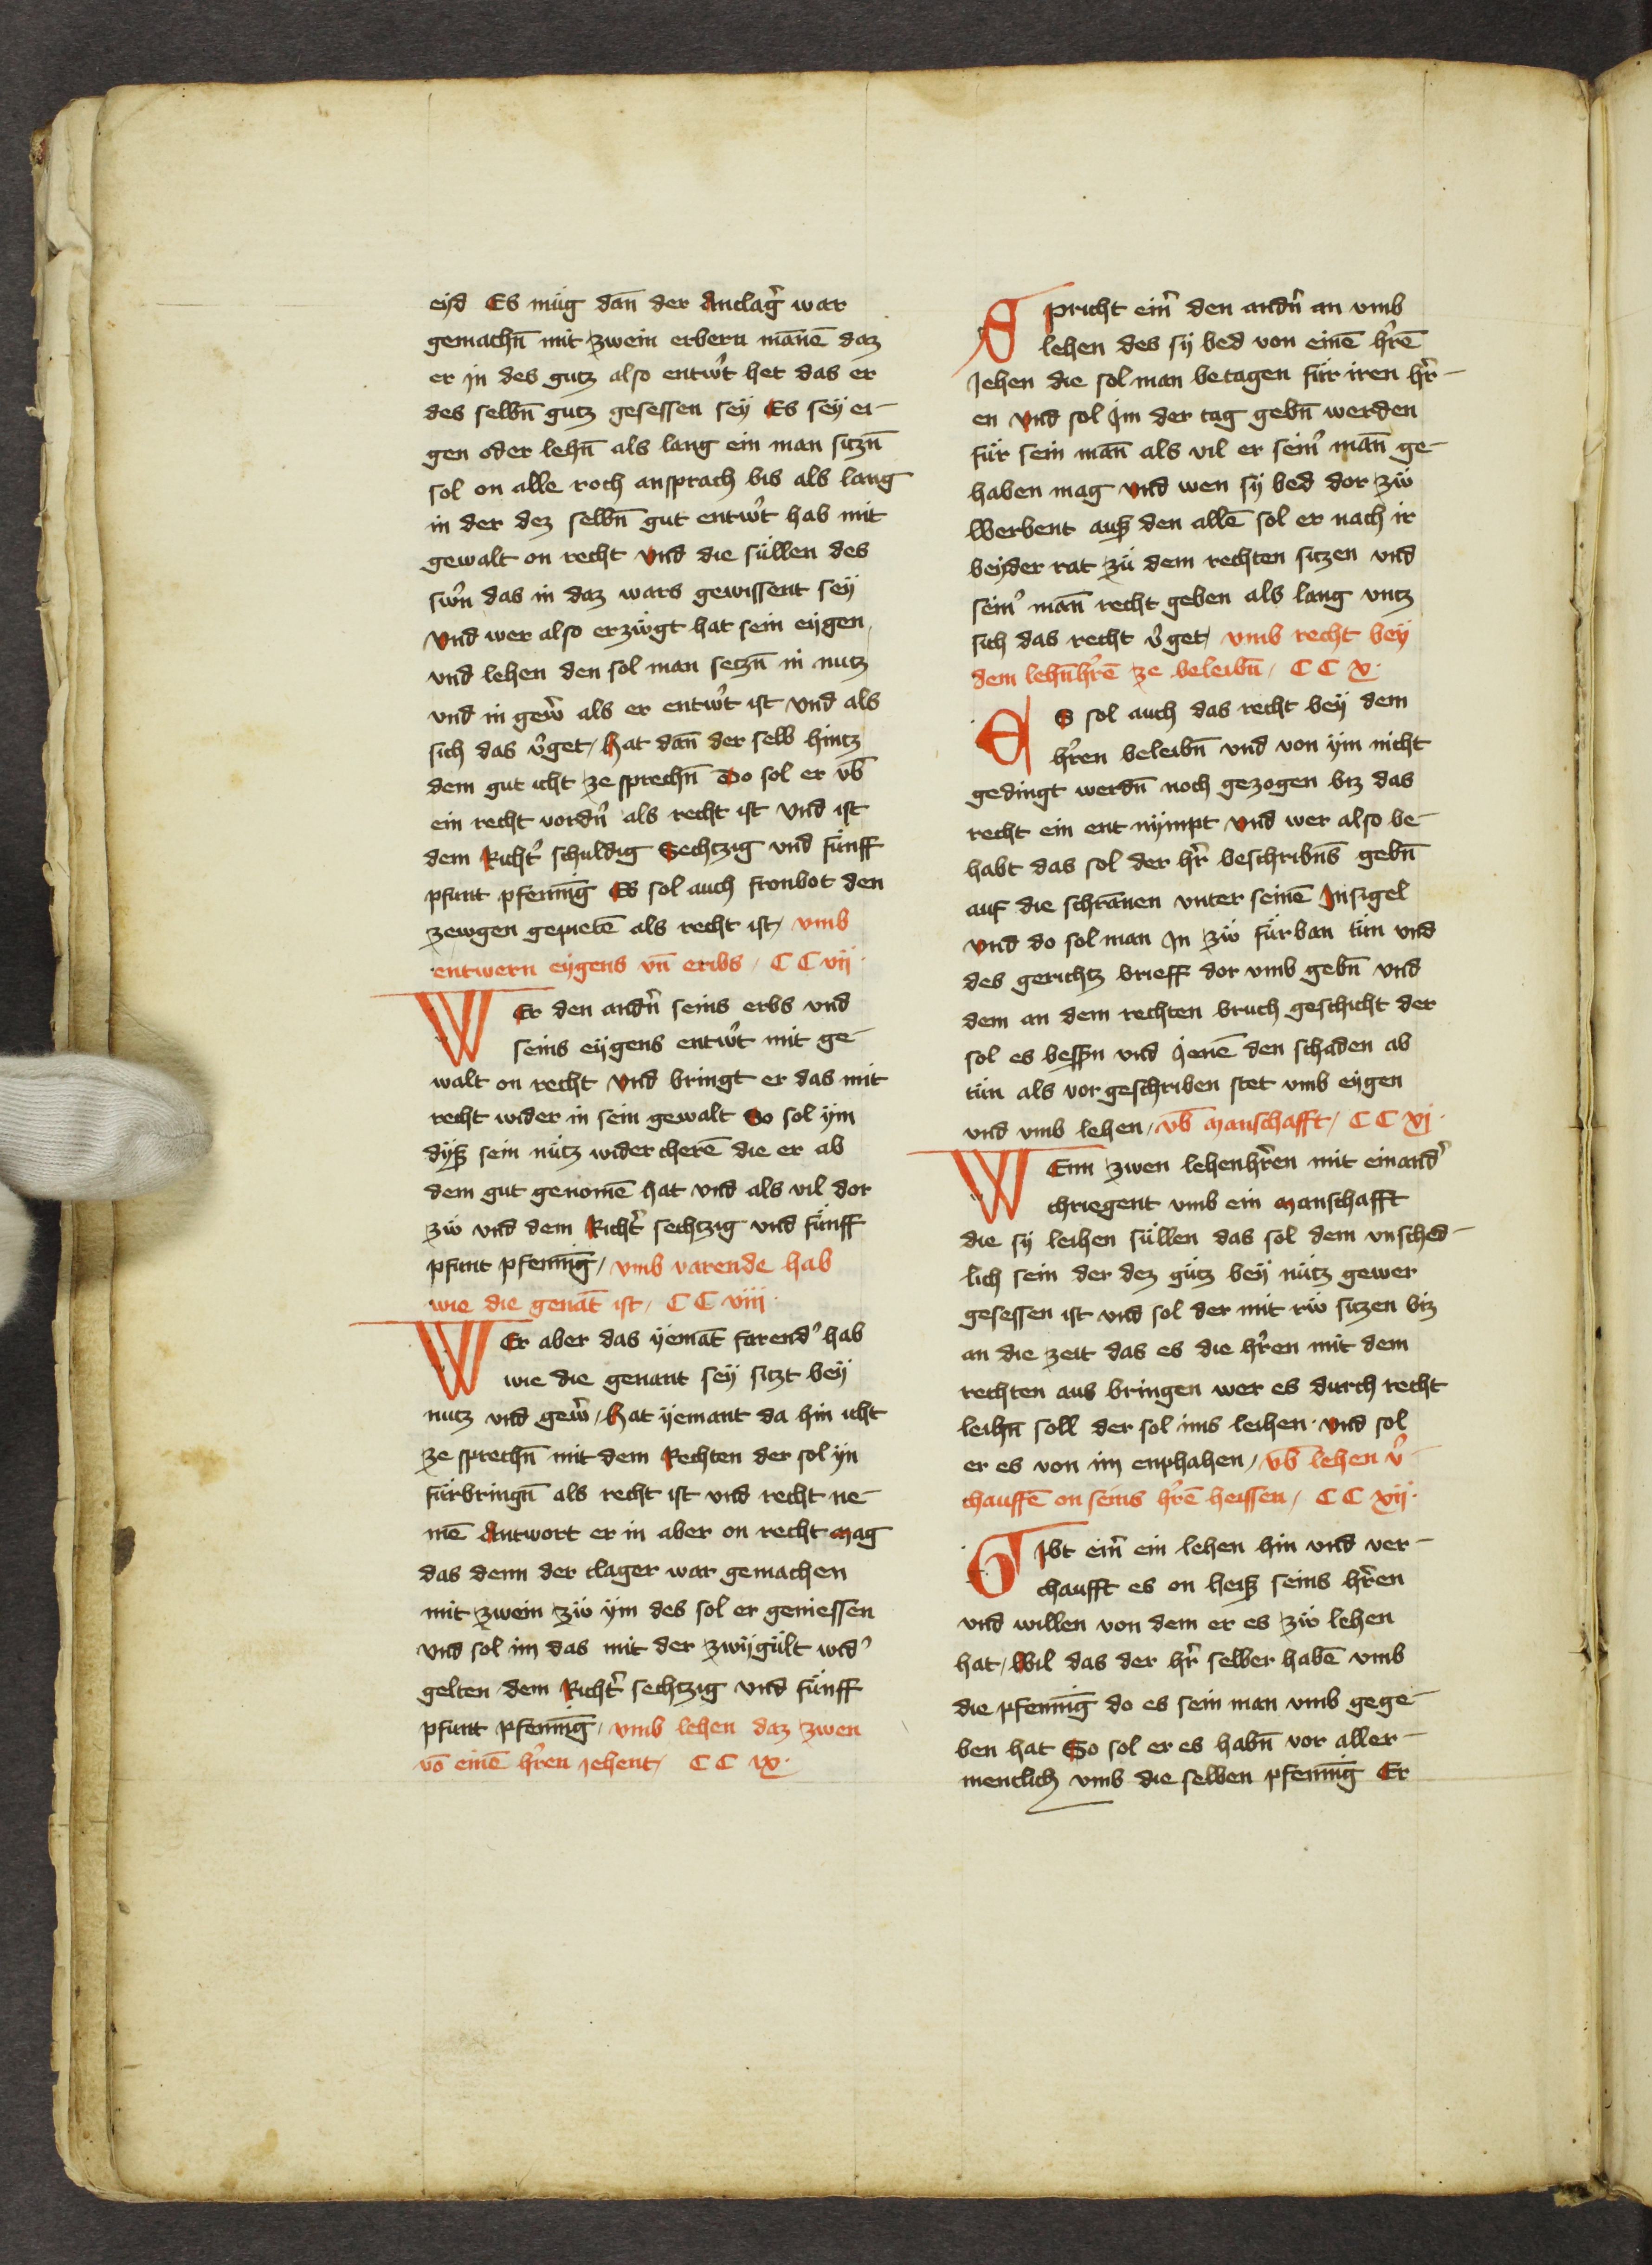 eyd Es müg dan̄ der Anclag̉ war
gemachn̄ mit zwein erbern man̄ē daz
er in des gutz also entwr̉t het das er
des selbn̄ gutz gesessen sey Es sey ei-
gen oder lehn̄ als lang ein man sitzn̄
sol on alle roch ansprach bis als lang
in der dez selbn̄ gut entwr̉t hab mit
gewalt on recht vnd die süllen des
swr̉n das in daz wars gewissent sey
vnd wer also erzwgt hat sein eygen
vnd lehen den sol man setzn̄ in nutz
vnd in gewr̉ als er entwr̉t ist vnd als
sich das v̉get / hat dan̄ der selb hintz
dem gut icht ze sprechn̄ Do sol er vb̄
ein recht vordn̉ als recht ist vnd ist
dem Richt̉ schuldig Sechtzig vnd fünff
pfunt pfeninḡ Es sol auch fronbot den
zewgen gepietē als recht ist / vmb
entwern eygens vn̄ eribs / C C vij
WEr den andn̉ seins erbs vnd
seins eygens entwr̉t mit ge-
walt on recht vnd bringt er das mit
recht wider in sein gewalt So sol ym
dyß sein nütz wider cherē die er ab
dem gut genomē hat vnd als vil dor
zw vnd dem Richt̉ sechtzig vnd fünff
pfunt pfeninḡ / vmb varende hab
wie die genāt ist / C C viij
WEr aber das yemāt farend̉ hab
wie die genant sey sitzt bey
nutz vnd gewr̉ / hat yemant da hin icht
ze sprechn̄ mit dem Rechten der sol yn
fürbringn̄ als recht ist vnd recht ne-
mē Antwort er in aber on recht mag
das denn der clager war gemachen
mit zwein zw ym des sol er geniessen
vnd sol im das mit der zwygült wid̉
gelten dem Richt̉ sechtzig vnd fünff
pfunt pfeninḡ / vmb lehen daz zwen
vō einē hr̉en iehent / C C ix
Spricht ein̉ den andn̉ an vmb
lehen des sy bed von einē hr̉ē
Jehen die sol man betagen für iren hr̉-
en vnd sol Jm der tag gebn̄ werden
für sein man̄ als vil er sein̉ man̄ ge-
haben mag vnd wen sy bed dor zw
Werbent auß den allē sol er nach ir
beyder rat zü dem rechten sitzen vnd
sein̉ man̄ recht geben als lang vntz
sich das recht v̉get / vmb recht bey
dem lehn̄hr̉ē ze beleibn̄ / C C x
ES sol auch das recht bey dem
hr̉en beleibn̄ vnd von ym nicht
gedingt werdn̄ noch gezogen biz das
recht ein ent nympt vnd wer also be-
habt das sol der hr̉ beschribn̄s gebn̄
auf die schrānen vnter seinē Jnsigel
vnd do sol man Jn zw fürban tün vnd
des gerichtz brieff dor vmb gebn̄ vnd
dem an dem rechten bruch geschicht der
sol es bessn̄ vnd Jenē den schaden ab
tün als vor geschriben stet vmb eygen
vnd vmb lehen / vb̄ manschafft / C C xj
WEnn zwen lehenhr̉en mit einand̉
chriegent vmb ein manschafft
die sy leihen süllen das sol dem vnsched-
lich sein der dez gütz bey nütz gewer
gesessen ist vnd sol der mit rw sitzen biz
an die zeit das es die hr̉en mit dem
rechten aus bringen wer es durch recht
leihn̄ soll der sol ims leihen vnd sol
er es von im enphahen / vb̄ lehen v̉-
chauffē on seins hr̉ē heissen / C C xij
GJbt ein̉ ein lehen hin vnd ver-
chaufft es on heiß seins hr̉en
vnd willen von dem er es zw lehen
hat / Wil das der hr̉ selber habē vmb
die pfeninḡ do es sein man vmb gege-
ben hat So sol er es habn̄ vor aller-
mencklich vmb die selben pfeninḡ Er